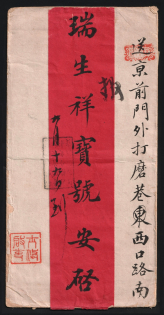 送京前門外打磨巷東西口路南
瑞生祥寶號安啓
九月十九日到